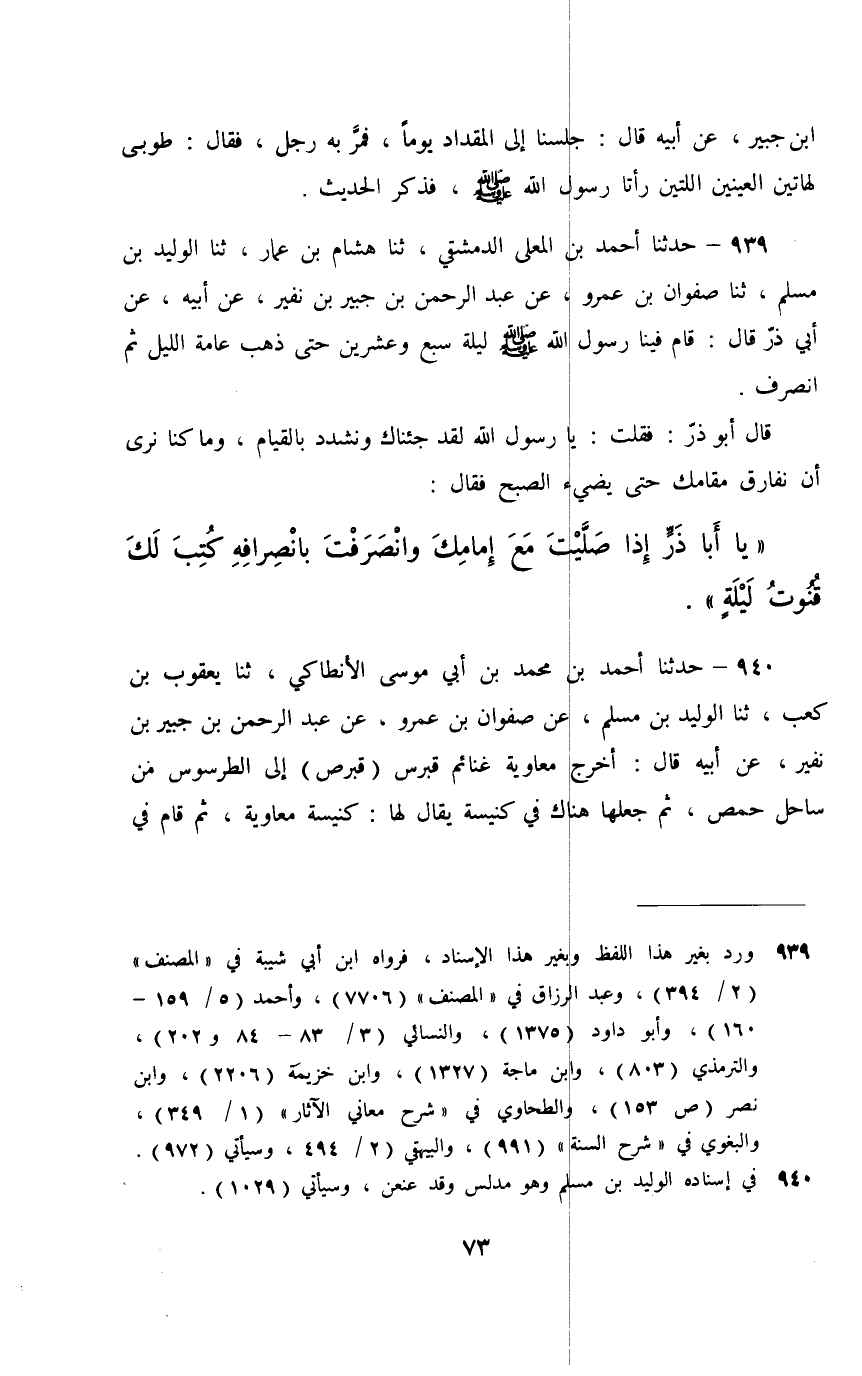 ابن جبير ، عن أبيه قال : جلسنا إلى المقداد يوماً ، فمرَّ به رجل ، فقال : طوبى
لهاتين العينين اللتين رأتا رسول الله ﷺ ، فذكر الحديث .
٩٣٩ – حدثنا أحمد بن المعلى الدمشقي ، ثنا هشام بن عمار ، ثنا الوليد بن
مسلم ، ثنا صفوان بن عمرو ، عن عبد الرحمن بن جبير بن نفير ، عن أبيه ، عن
أبي ذرّ قال : قام فينا رسول الله ﷺ ليلة سبع وعشرين حتى ذهب عامة الليل ثم
انصرف .
قال أبو ذرّ : فقلت : يا رسول الله لقد جئناك ونشدد بالقيام ، وما كنا نرى
أن نفارق مقامك حتى يضيء الصبح فقال :
« يا أَبا ذَرٍّ إِذا صَلَّيْتَ مَعَ إِمامِكَ وانْصَرَفْتَ بانْصِرافِهِ كُتِبَ لَكَ
قُنُوتُ لَيْلَةٍ » .
٩٤٠ – حدثنا أحمد بن محمد بن أبي موسى الأنطاكي ، ثنا يعقوب بن
كعب ، ثنا الوليد بن مسلم ، عن صفوان بن عمرو ، عن عبد الرحمن بن جبير بن
نفير ، عن أبيه قال : أخرج معاوية غنائم قبرس ( قبرص ) إلى الطرسوس من
ساحل حمص ، ثم جعلها هناك في كنيسة يقال لها : كنيسة معاوية ، ثم قام في
٩٣٩ ورد بغير هذا اللفظ وبغير هذا الإسناد ، فرواه ابن أبي شيبة في « المصنف »
( ٢ / ٣٩٤ ) ، وعبد الرزاق في « المصنف » ( ٧٧٠٦ ) ، وأحمد ( ٥ / ١٥٩ –
١٦٠ ) ، وأبو داود ( ١٣٧٥ ) ، والنسائي ( ٣ / ٨٣ – ٨٤ و ٢٠٢ ) ،
والترمذي ( ٨٠٣ ) ، وابن ماجة ( ١٣٢٧ ) ، وابن خزيمة ( ٢٢٠٦ ) ، وابن
نصر ( ص ١٥٣ ) ، والطحاوي في « شرح معاني الآثار » ( ١ / ٣٤٩ ) ،
والبغوي في « شرح السنة » ( ٩٩١ ) ، والبيهقي ( ٢ / ٤٩٤ ، وسيأتي ( ٩٧٢ ) .
٩٤٠ في إسناده الوليد بن مسلم وهو مدلس وقد عنعن ، وسيأتي ( ١٠٢٩ ) .
٧٣